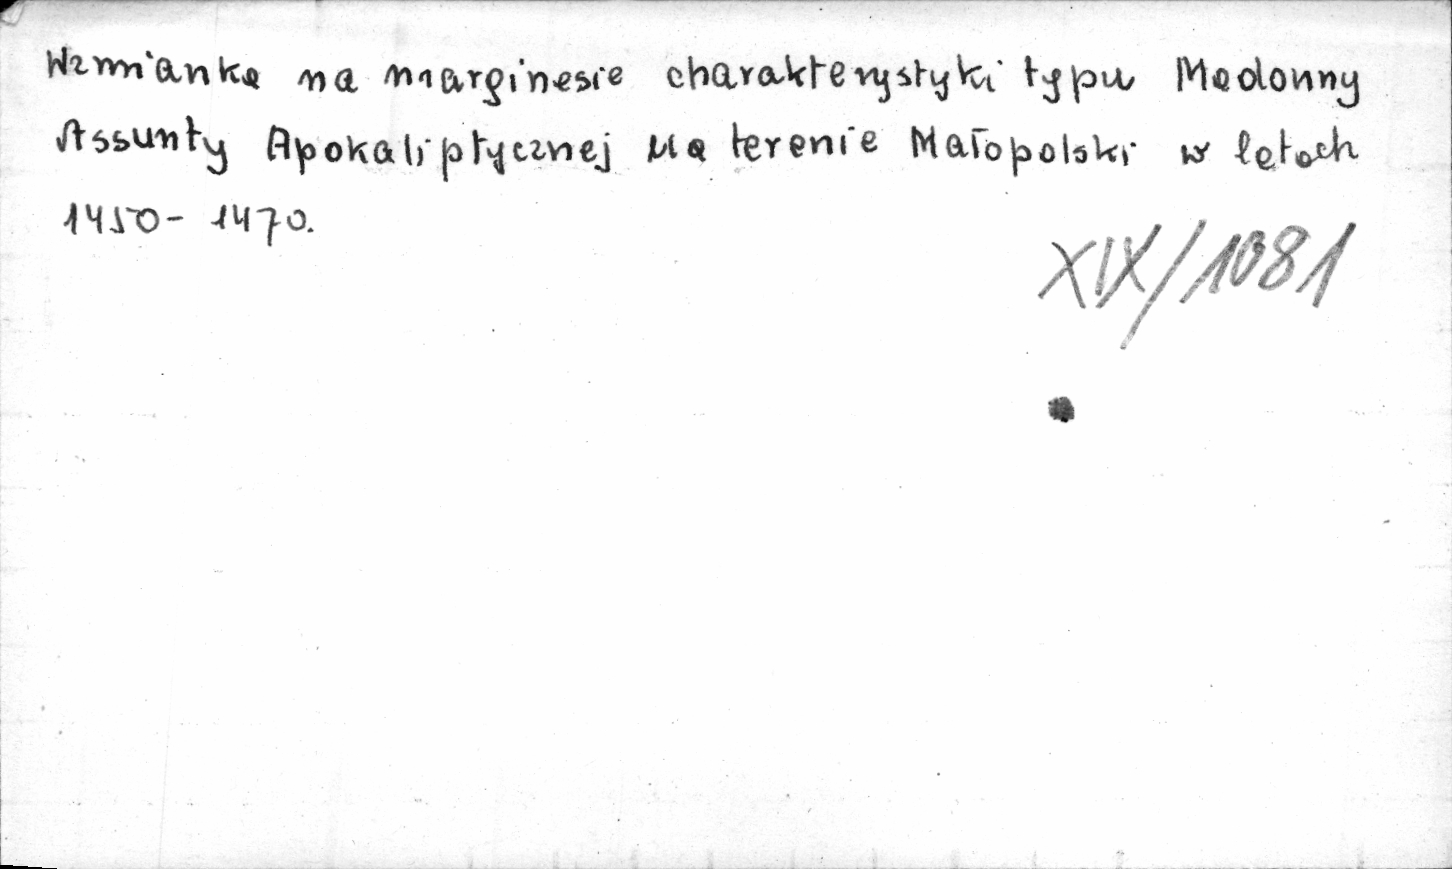 Wzmianka na marginesie charakterystyki typu Madonny
Assunty Apokaliptycznej na terenie Małopolski w latach
1450- 1470.
XIX/1081